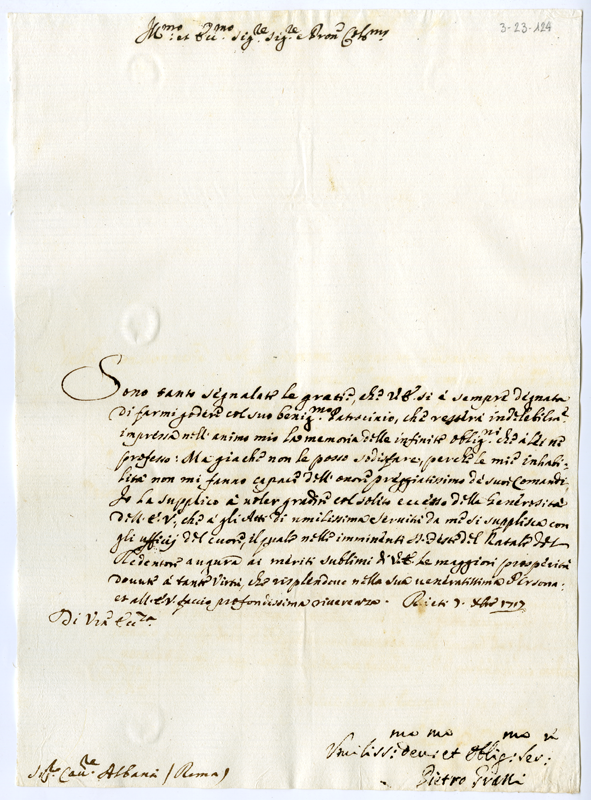 3-23-124
Ill.mo et Ecc.mo Sig.re Sig.re e Pron Col.mo
Sono tanto segnalate le gratie, che V.E. si è sempre degnata
di farmi godere col suo benig.mo Patrocinio, che resterà indelebilm.te
impressa nell'animo mio la memoria delle infinite oblig.ni che à Lei ne
professo: Ma giache non le posso sodisfare, perche le mie inhabi-
lità non mi fanno capace dell'onore preggiatissimo de suoi Comandi.
Io la supplico à voler gradire col solito eccesso della Generosità
dell'E.V., che à gli Atti di umilissima servitù da me si supplisca con
gli ufficij del cuore, il quale nelle imminenti Feste del Natale del
Redentore augura ai meriti sublimi di V.E. le maggiori prosperità
dovute à tante Virtù, che risplendono nella sua veneratissima Persona:
et all'E.V. faccio profondissima riverenza. Rieti 7. Xbre 1717
Di Vra Ecc.za
Sig.r Cav.re Albani (Roma)
Umiliss.mo Dev.mo et Oblig.mo Ser.re
Pietro